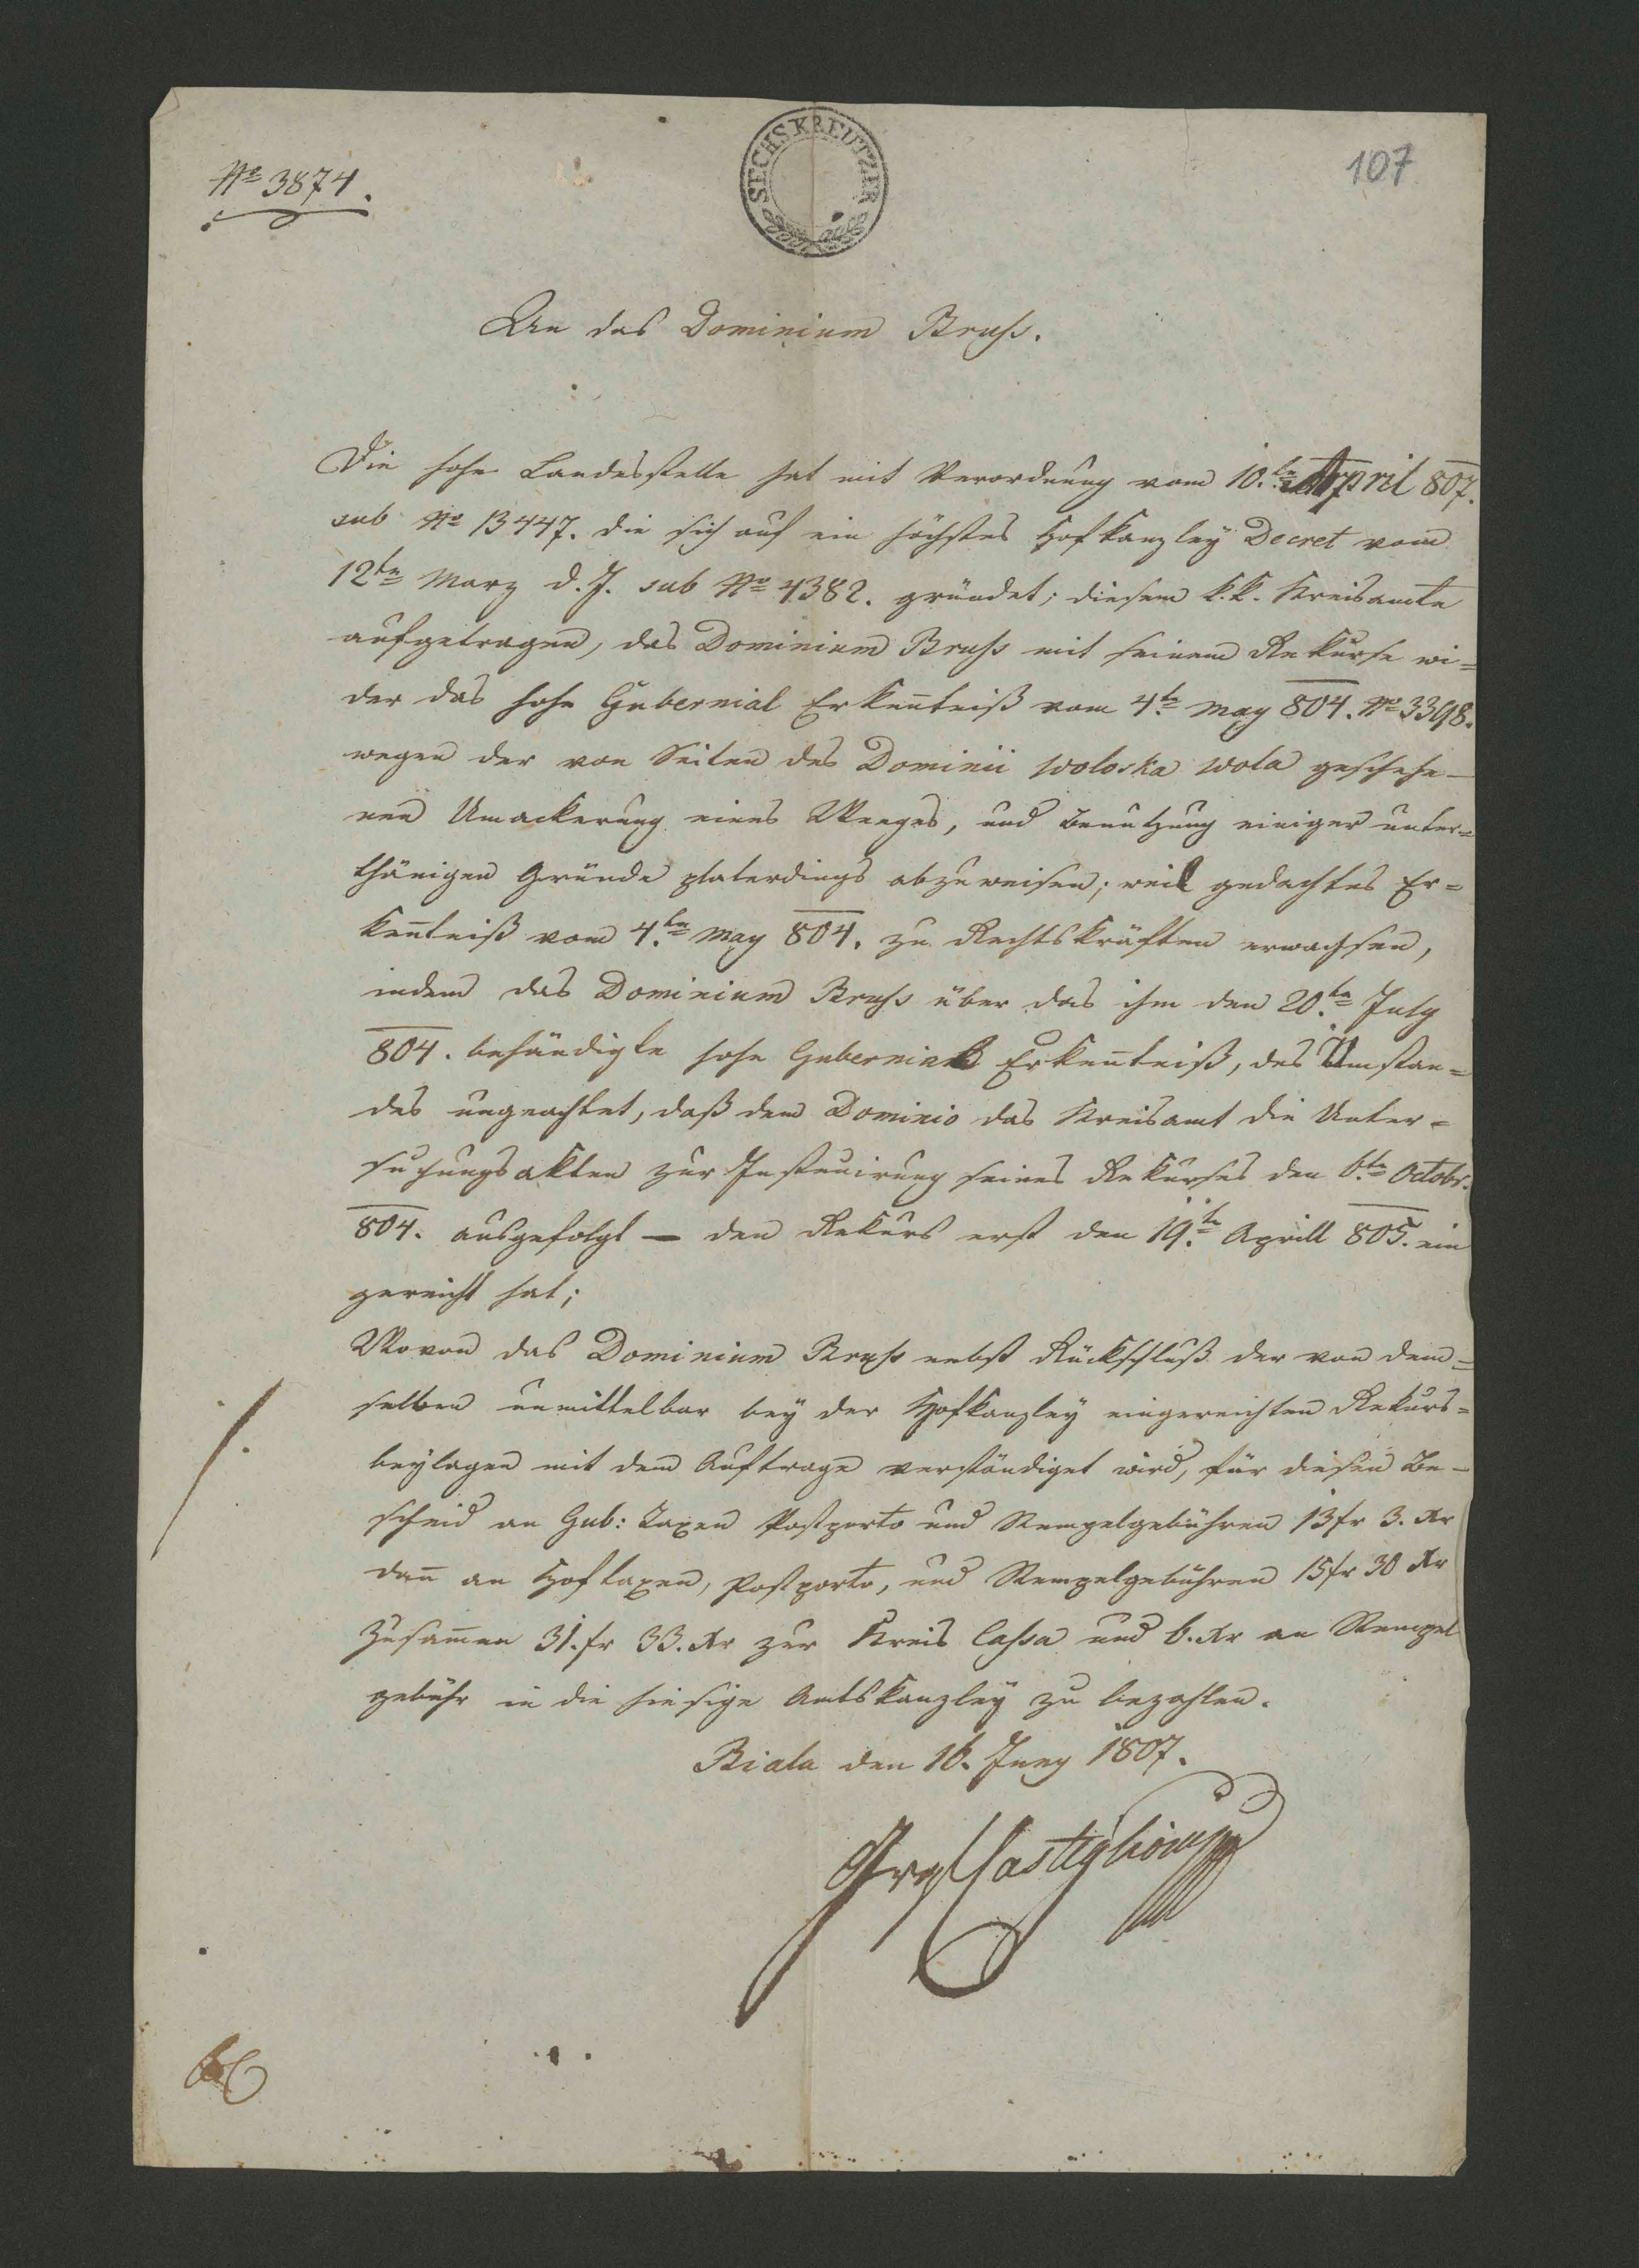 Nro 3874.
SECHS KREUTZER
107
An das Dominium Bruss.
Die hohe Landesstelle hat mit Verordnung vom 10.ten April 807.
sub Nro 13447. die sich auf ein höchstes Hofkanzley Decret vom
12ten März d. J. sub Nro 4382. gründet; diesem k.k. Kreisamte
aufgetragen, das Dominium Bruss mit seinem Rekurse wi=
der das hohe Gubernial Erkeñtniß vom 4.ten May 804. Nro 3398.
wegen der von Seiten des Dominii Woloska Wola geschehe-
nen Umackerung eines Weeges, und Benutzung einiger unter=
thänigen Gründe platerdings abzuweisen; weil gedachtes Er=
keñtniß vom 4.ten May 804. zu Rechtskräften erwachsen,
indem das Dominium Bruss über das ihm den 20.ten July
804. behändigte hohe Gubernial Erkeñtniß, des Umstan=
des ungeachtet, daß dem Dominio das Kreisamt die Unter=
suchungsakten zur Instruirung seines Rekurses den 6.ten Octobr.
804. ausgefolgt — den Rekurs erst den 19.ten Aprill 805. ein
gereicht hat;
Wovon das Dominium Bruss nebst Rückschluß der von dem=
selben unmittelbar bey der Hofkanzley eingereichten Rekurs=
beylagen mit dem Auftrage verständiget wird, für diesen Be-
scheid an Gub: Taxen Postporto und Stempelgebühren 13 fr 3. Xr
dañ an Hoftaxen, Postporto, und Stempelgebühren 15 fr 30 Xr
Zusam̃en 31. fr 33. Xr zur Kreis Cassa und 6. Xr an Stempel
gebühr in die hiesige Amtskanzley zu bezahlen.
Biala den 16. Juny 1807.
Castiglioni